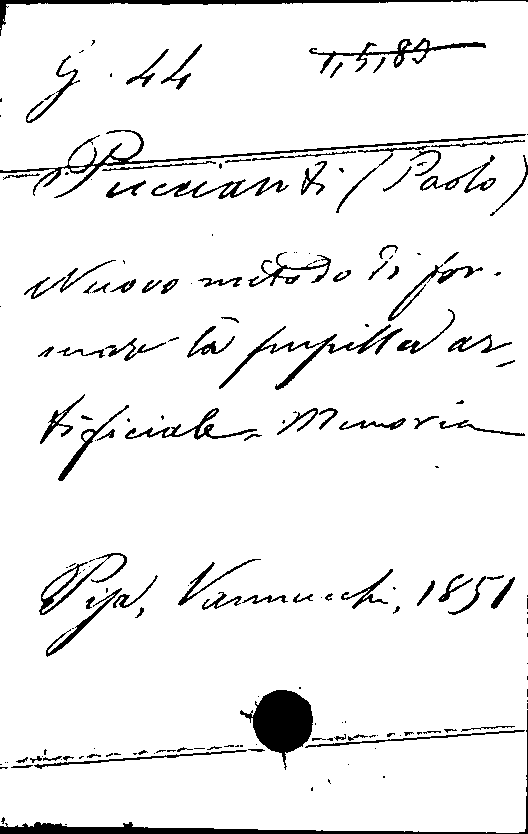 G. 44 1,5,89
Puccianti (Paolo)
Nuovo metodo di for-
mare la pupilla ar-
tificiale - Memoria
Pisa, Vannucchi, 1851